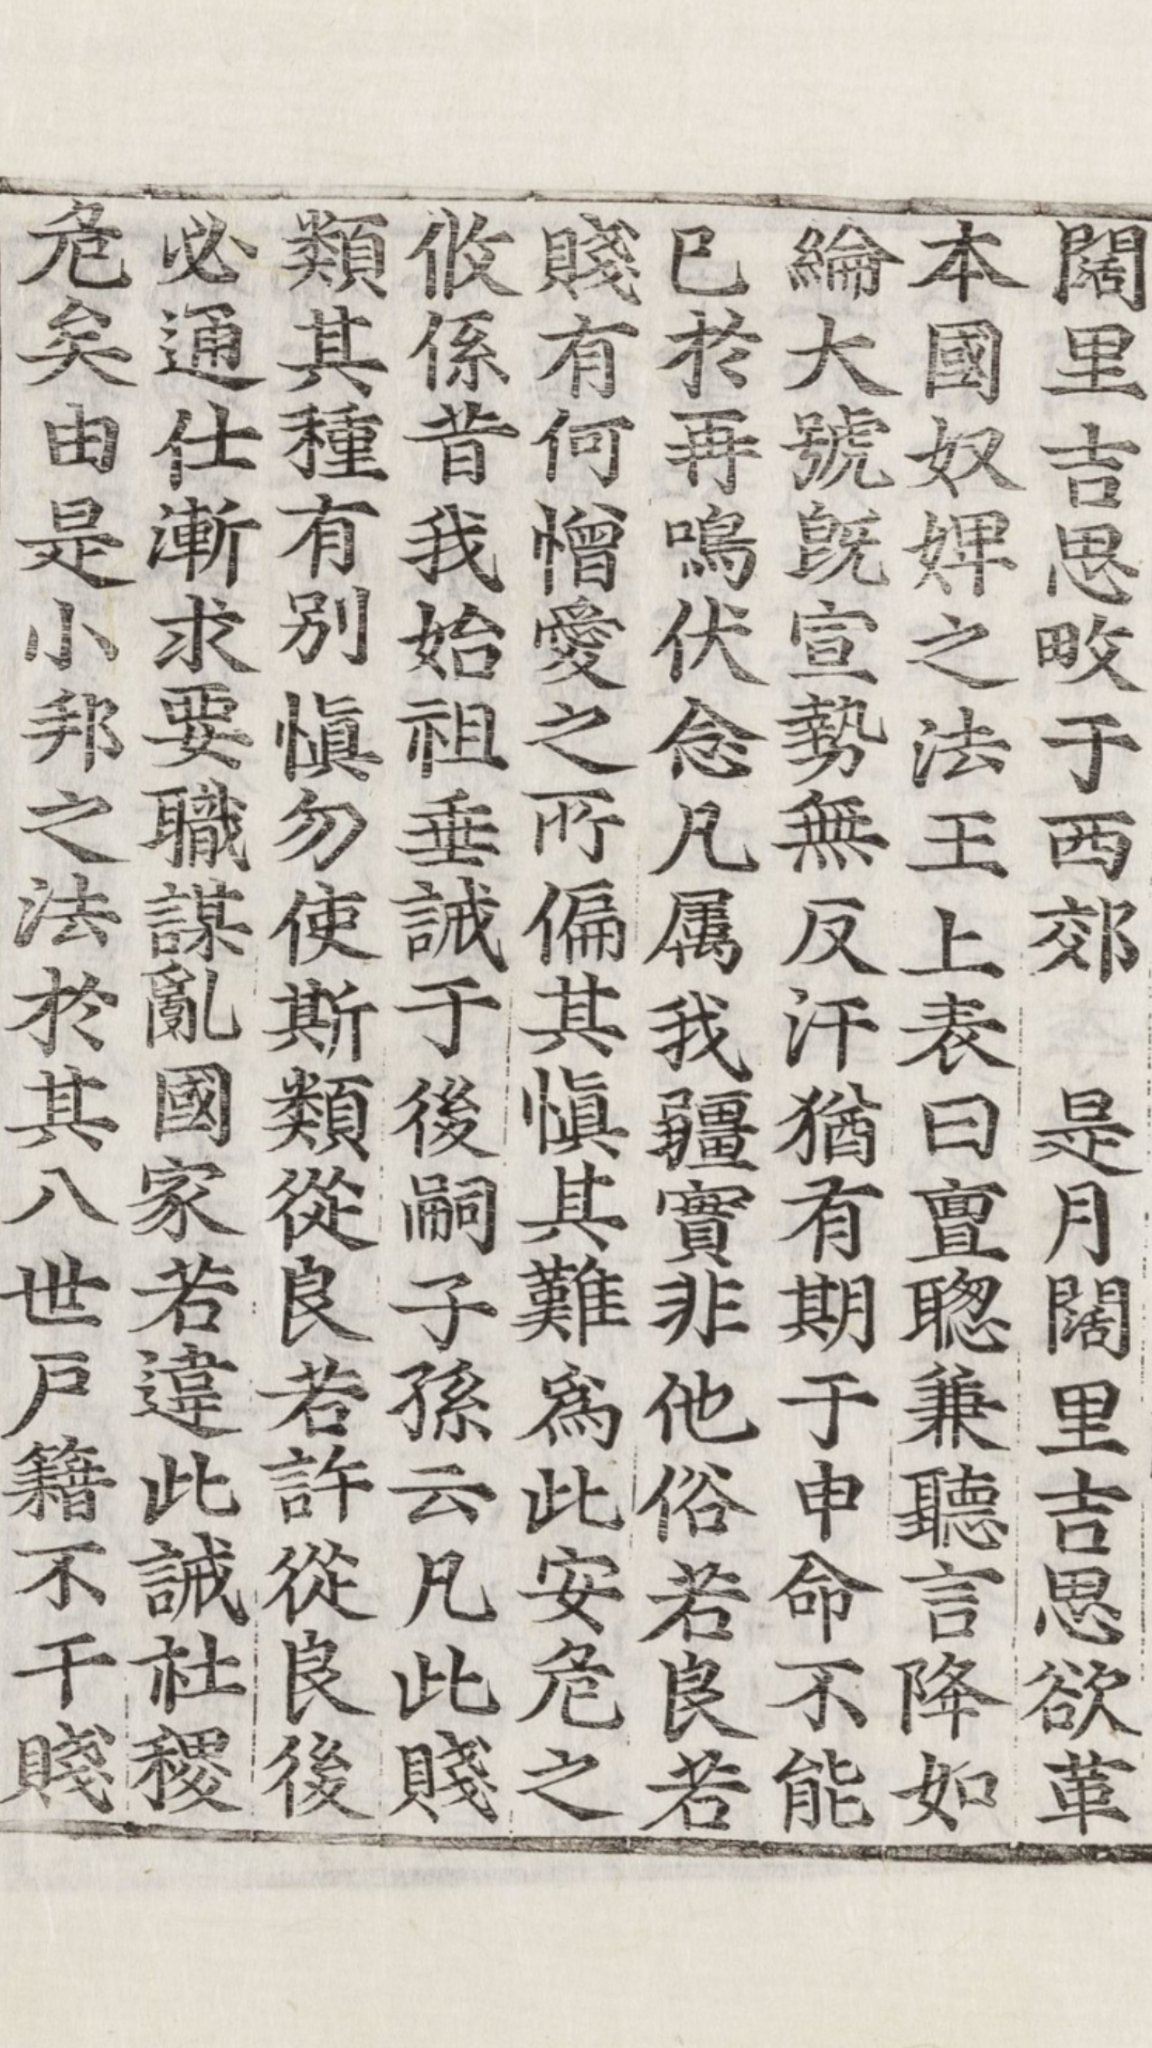 闊里吉思畋于西郊　是月闊里吉思欲革
本國奴婢之法王上表曰亶聦兼聽言降如
綸大號旣宣勢無反汗猶有期于申命不能
已於再鳴伏念凡属我疆實非他俗若良若
賤有何憎愛之所偏其愼其難爲此安危之
攸係昔我始祖垂誡于後嗣子孫云凡此賤
類其種有別愼勿使斯類從良若許從良後
必通仕漸求要職謀亂國家若違此誡社稷
危矣由是小邦之法於其八世戶籍不干賤